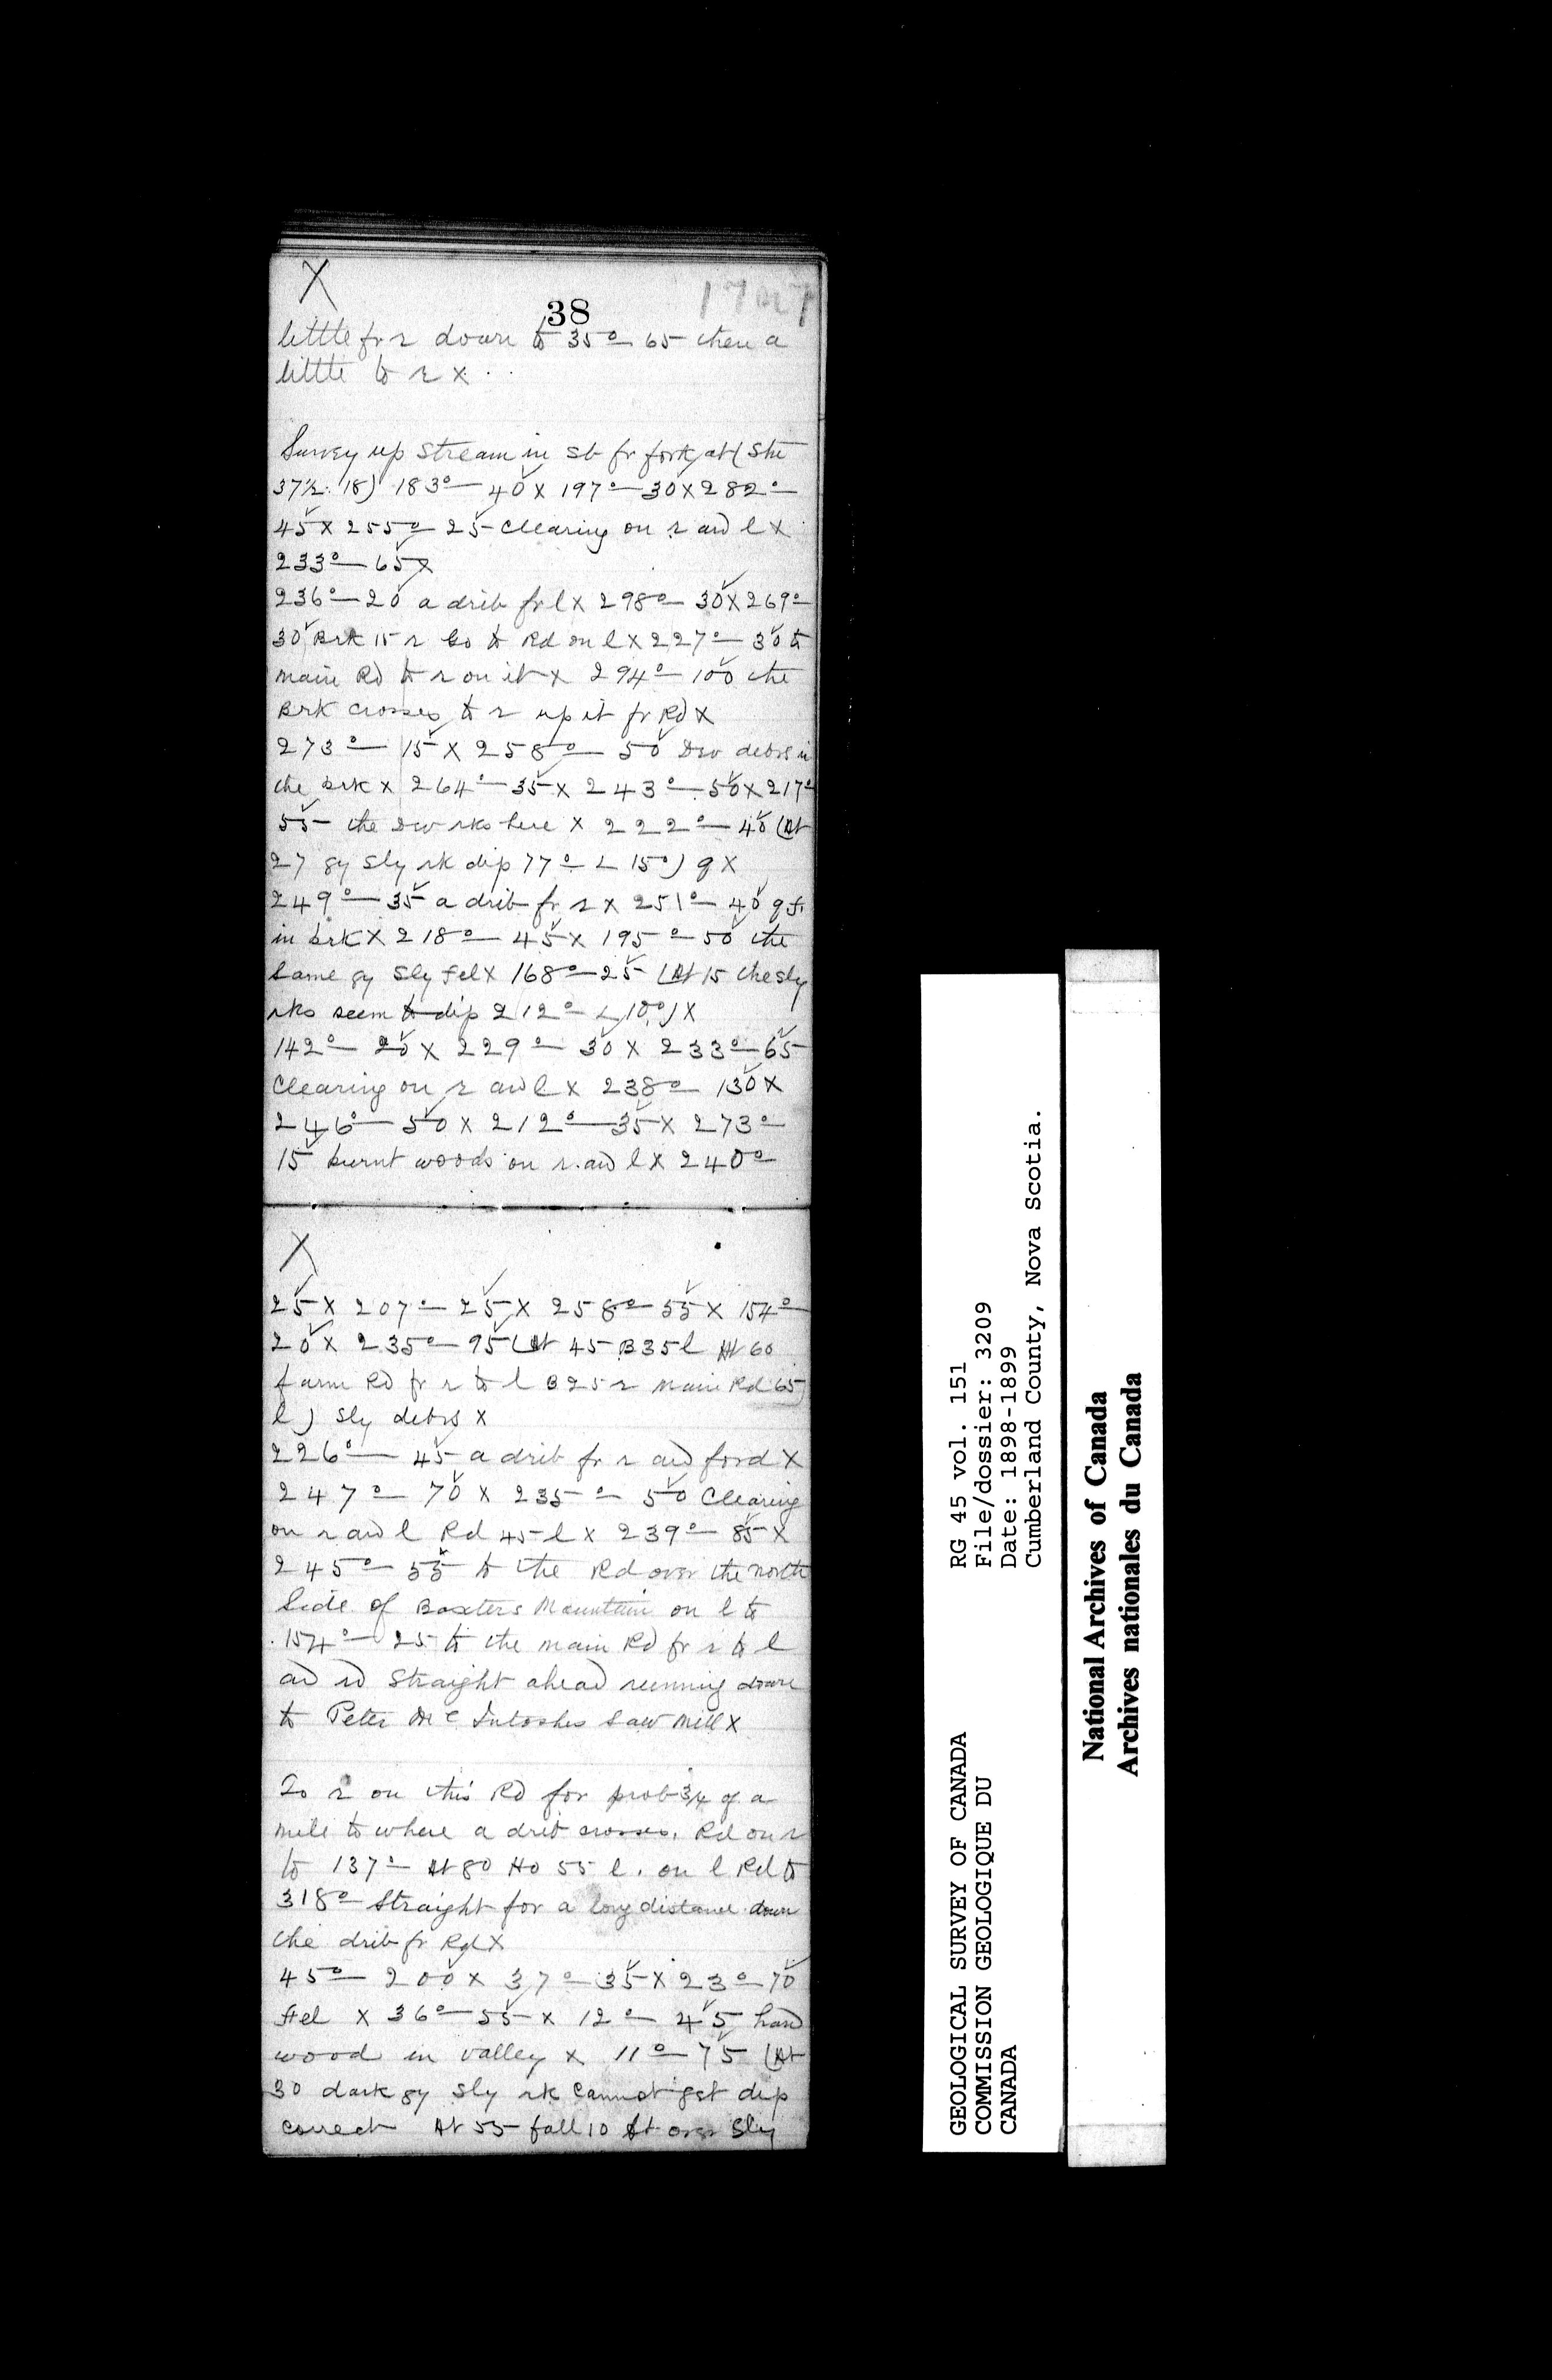 X
38
little fr r down to 35° 65 then a
little to r X
Survey up stream in St fr fork at (Stu
37½ 18) 183°— 40 X 197°— 30 X 282°—
45 X 255°— 25 Clearing on r and l X
233°— 65 X
236°— 20 a drib fr l X 298°— 30 X 269°—
30 Brk 15 r Go to Rd on l X 227°— 30 to
main Rd to r on it X 294°— 100 the
Brk crosses to r up it fr Rd X
273°— 15 X 258°— 50 Dev debris in
the brk X 264°— 35 X 243°— 50 X 217°
55 the Dev rks here X 222°— 40 (At
27 gy sly rk dip 77° L 15°) g X
249°— 35 a drib fr r X 251°— 40 g
in brk X 218°— 45 X 195°— 50 the
same gy sly fel X 168°— 25 (At 15 the sly
rks seem to dip 212° L 10°) X
142°— 20 X 229°— 30 X 233°— 65
Clearing on r and l X 238°— 130 X
246°— 50 X 212°— 35 X 273°—
15 burnt woods on r and l X 240°
X
25 X 207°— 25 X 258°— 55 X 154°—
20 X 235°— 95 (At 45 B 35 l At 60
farm Rd fr r to l B 25 r Main Rd 65
l) Sly debris X
226°— 45 a drib fr r and ford X
247°— 70 X 235°— 50 Clearing
on r and l Rd 45 l X 239°— 85 X
245°— 55 to the Rd over the north
side of Baxters Mountain on l to
154°— 25 to the main Rd fr r to l
and rd Straight ahead running down
to Peter McIntoshes Saw Mill X
To r on this Rd for prob 3/4 of a
mile to where a drib crosses. Rd on r
to 137°— At 80 Ho 55 l. on l Rd to
318° Straight for a long distance down
the drib fr Rd X
45°— 200 X 37°— 35 X 23°— 70
fel X 36°— 55 X 12°— 45 hard
wood in valley X 11°— 75 (At
30 dark gy sly rk Cannot get dip
correct At 55 fall 10 ft over Sly
GEOLOGICAL SURVEY OF CANADA
COMMISSION GEOLOGIQUE DU
CANADA
RG 45 vol. 151
File/dossier: 3209
Date: 1898-1899
Cumberland County, Nova Scotia.
National Archives of Canada
Archives nationales du Canada